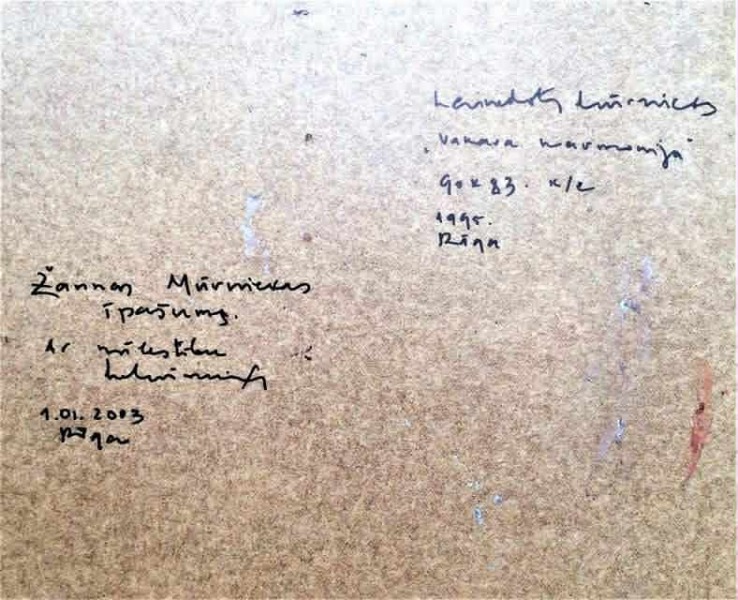 Laimdots Mūrnieks
"Vakara harmonija"
90 x 83. k/e
1995.
Rīga
Žannas Mūrniekas
īpašums.
Ar mīlestību
1.01.2003
Rīga